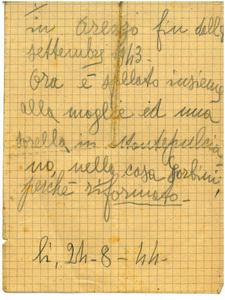 in Arezzo fin dalla
settembre 1943.
Ora è sfollato insieme
alla moglie ed una
sorella in Montepulcia-
no, nella casa Gorbini,
perché riformato.
li, 24-8-44-